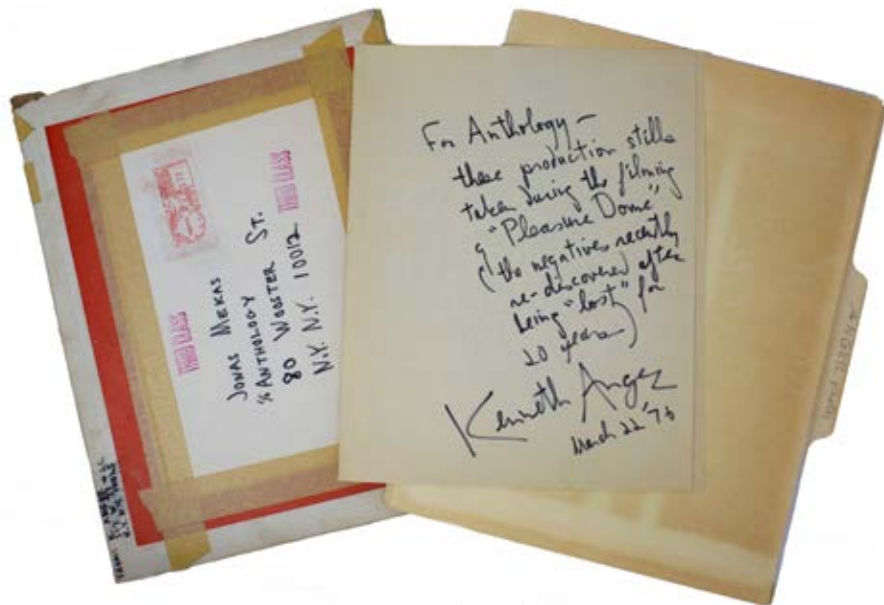 THIRD CLASS
JONAS MEKAS
% ANTHOLOGY
80 WOOSTER ST.
N.Y. N.Y. 10012
THIRD CLASS
For Anthology —
these production stills
taken during the filming
of "Pleasure Dome",
(the negatives recently
re-discovered after
being "lost" for
20 years)
Kenneth Anger
March 22 '76